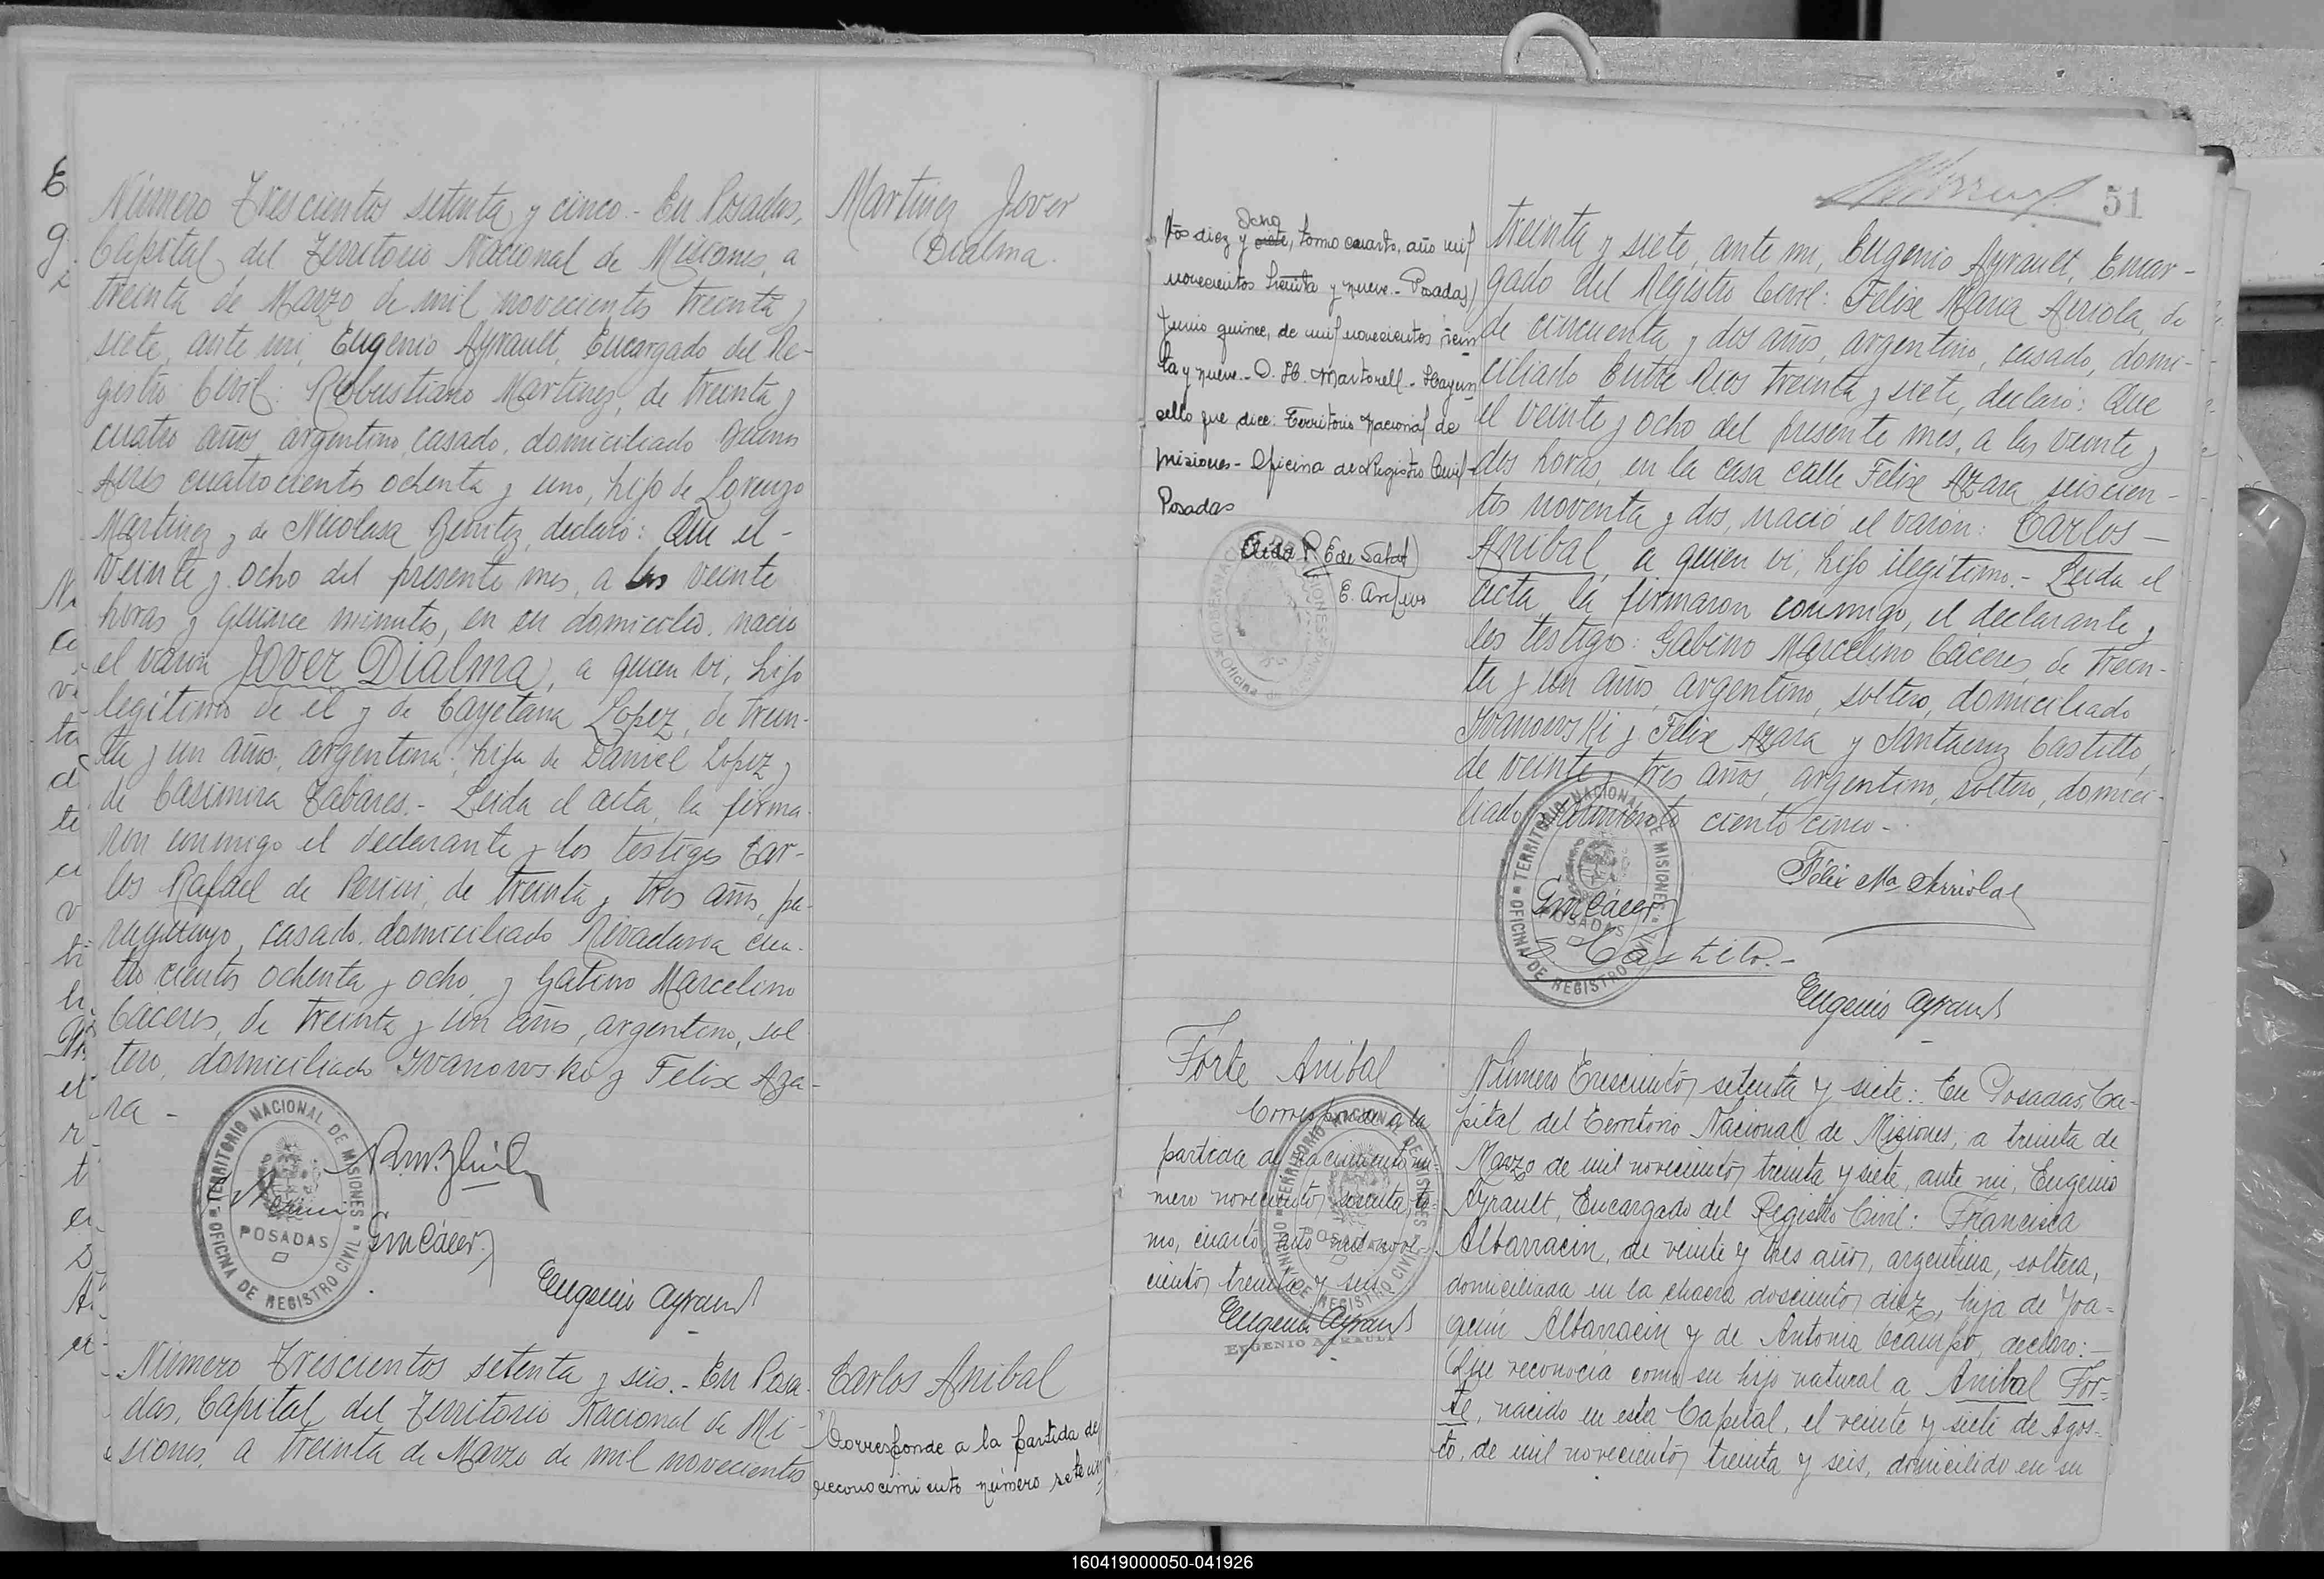 Número Trescientos setenta y cinco - En Posadas,
Capital del Territorio Nacional de Misiones, a
treinta de Marzo de mil novecientos treinta y
siete, ante mi, Eugenio Ayrault, Encargado del Re-
gistro Civil: Robustiano Martinez, de treinta y
cuatro años, argentino, casado, domiciliado Buenos
Aires cuatrocientos ochenta y uno, hijo de Lorenzo
Martinez y de Nicolasa Benitez, declaró: Que el -
veinte y ocho del presente mes, a las veinte
horas y quince minutos, en su domicilio, nació
el varón Jover Dialma, a quien vi, hijo
legítimo de él y de Cayetana Lopez, de trein-
ta y un años, argentina, hija de Daniel Lopez y
de Casimira Tabares. - Leida el acta, la firma-
ron conmigo el declarante y los testigos Car-
los Rafael de Perini, de treinta y tres años, pa-
raguayo, casado, domiciliado Rivadavia cua-
tro cientos ochenta y ocho, y Gabino Marcelino
Cáceres, de treinta y un años, argentino, sol
tero, domiciliado Ivanowski y Felix Aza-
ra -
TERRITORIO NACIONAL DE MISIONES
POSADAS
OFICINA DE REGISTRO CIVIL
GmCáceres
Eugenio Ayrault
Martinez Jover
Dialma.
Número Trescientos setenta y seis. - En Posa-
das, Capital del Territorio Nacional de Mi-
siones, a treinta de Marzo de mil novecientos
Carlos Anibal
Corresponde a la partida de
reconocimiento número setecien
51
tos diez y siete, tomo cuarto, año mil
ocho
novecientos treinta y nueve. - Posadas,
Junio quince, de mil novecientos trein
ta y nueve. - D. H. Martorell - Hay un
sello que dice: Territorio Nacional de
Misiones - Oficina de Registro Civil -
Posadas
E. Archivo
treinta y siete, ante mi, Eugenio Ayrault, Encar-
gado del Registro Civil: Felix Maria Arriola, de
de cincuenta y dos años, argentino, casado, domi-
ciliado Entre Rios treinta y siete, declaró: Que
el veinte y ocho del presente mes, a las veinte y
dos horas, en la casa calle Felix Azara seiscien-
tos noventa y dos, nació el varón: Carlos -
Anibal, a quien vi, hijo ilegítimo. - Leida el
acta, la firmaron conmigo, el declarante y
los testigos: Gabino Marcelino Cáceres, de trein-
ta y un años, argentino, soltero, domiciliado
Ivanowski y Felix Azara y Santacruz Castillo,
de veinte y tres años, argentino, soltero, domici-
liado ciento cinco -
TERRITORIO NACIONAL DE MISIONES
POSADAS
OFICINA DE REGISTRO CIVIL
Félix Ma. Arriola
GmCáceres
S. Castillo. -
Eugenio Ayrault
Forte Anibal
Corresponde a la
partida de nacimiento nú-
mero novecientos sesenta, to-
mo, cuarto año mil nove-
cientos treinta y seis
Eugenio Ayrault
EUGENIO AYRAULT
Número Trescientos setenta y siete: En Posadas, Ca-
pital del Territorio Nacional de Misiones, a treinta de
Marzo de mil novecientos treinta y siete, ante mi, Eugenio
Ayrault, Encargado del Registro Civil: Francisca
Albarracin, de veinte y tres años, argentina, soltera,
domiciliada en la chacra doscientos diez, hija de Joa-
quin Albarracin y de Antonia Ocampo, declaró: -
Que reconocía como su hijo natural a Anibal For-
te, nacido en esta Capital, el veinte y siete de Agos-
to, de mil novecientos treinta y seis, domicilido en su
160419000050-041926